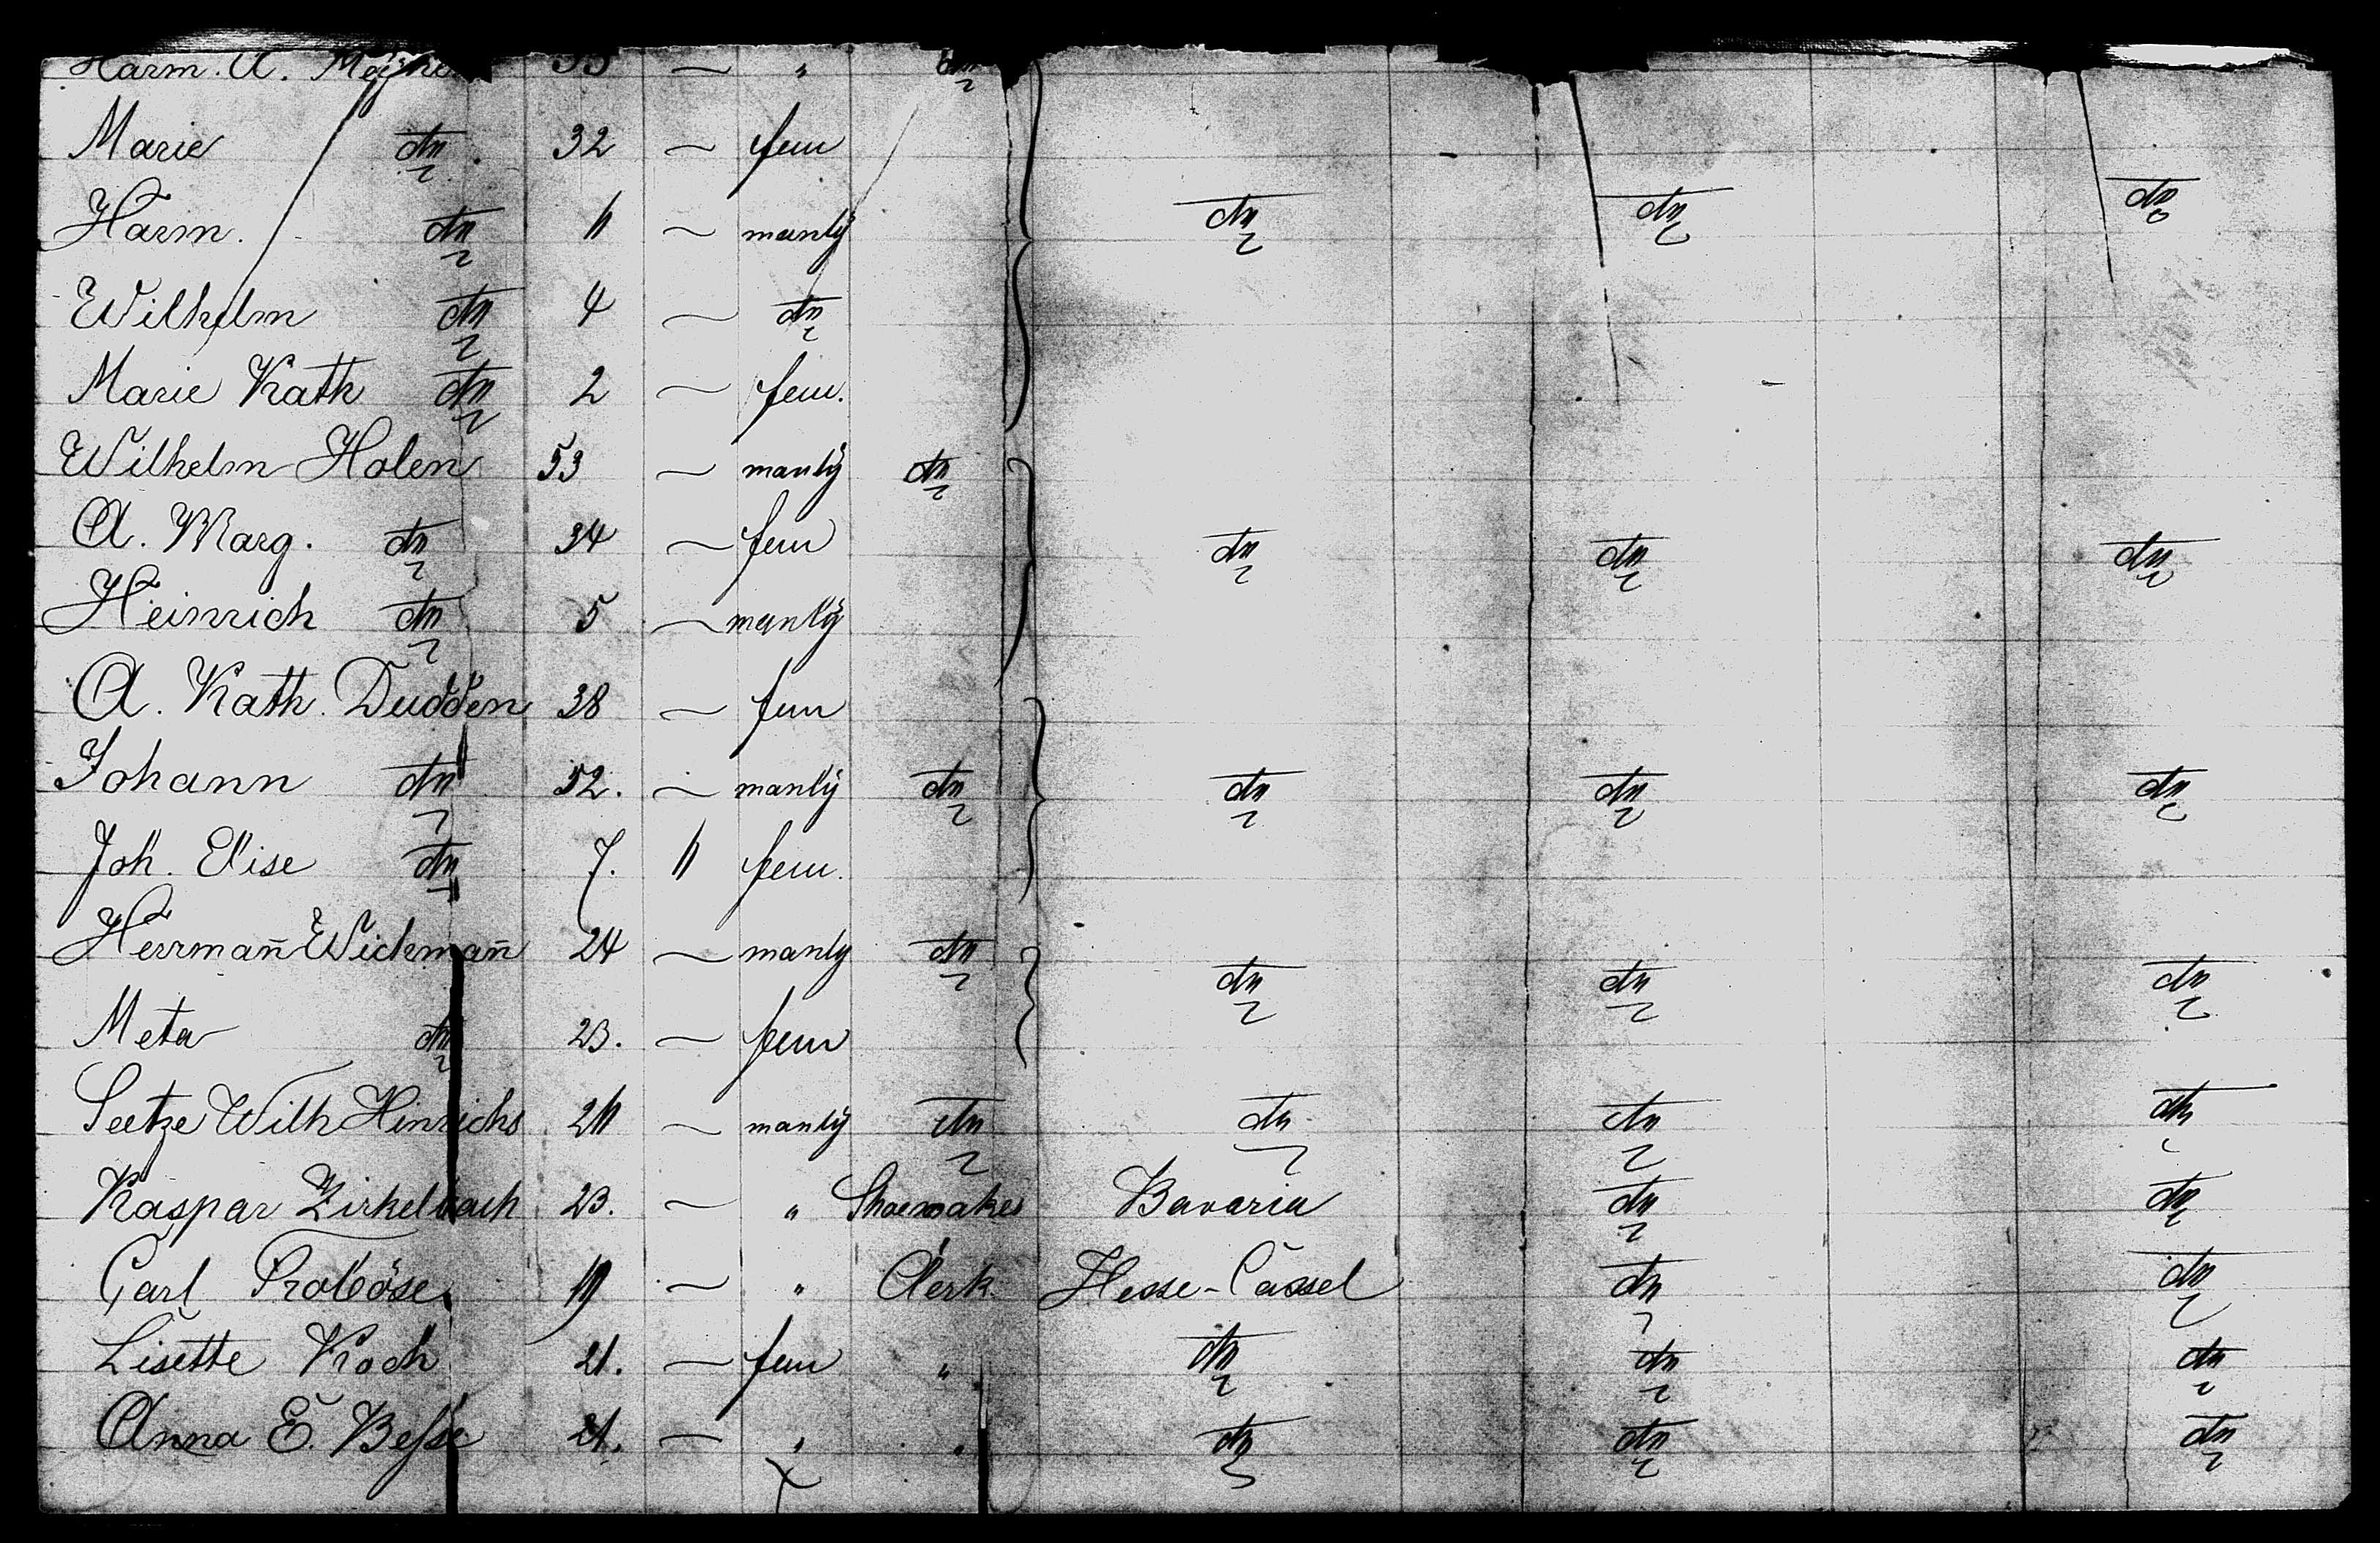 Harm. A. 33 — "
Marie do 32 — fem
Harm. do 11 — manly do do do
Wilhelm do 4 — do
Marie Kath do 2 — fem.
Wilhelm Holen 53 — manly do
A. Marg. do 34 — fem do do do
Heinrich do 5 — manly
A. Kath. Dudden 38 — fem
Johann do 52. — manly do do do do
Joh. Elise do 7. " fem.
Herrmañ Wichmañ 24 — manly do do do do
Meta do 23. — fem
Seetze Wilh Hinrichs — manly do do do do
Kaspar Zirkelbach 23. — " Shoemaker Bavaria do do
Carl Proböse 19 — " Clerk Hesse-Cassel do do
Lisette Koch 21. — fem " do do do
Anna E. Beſse 21. — " " do do do